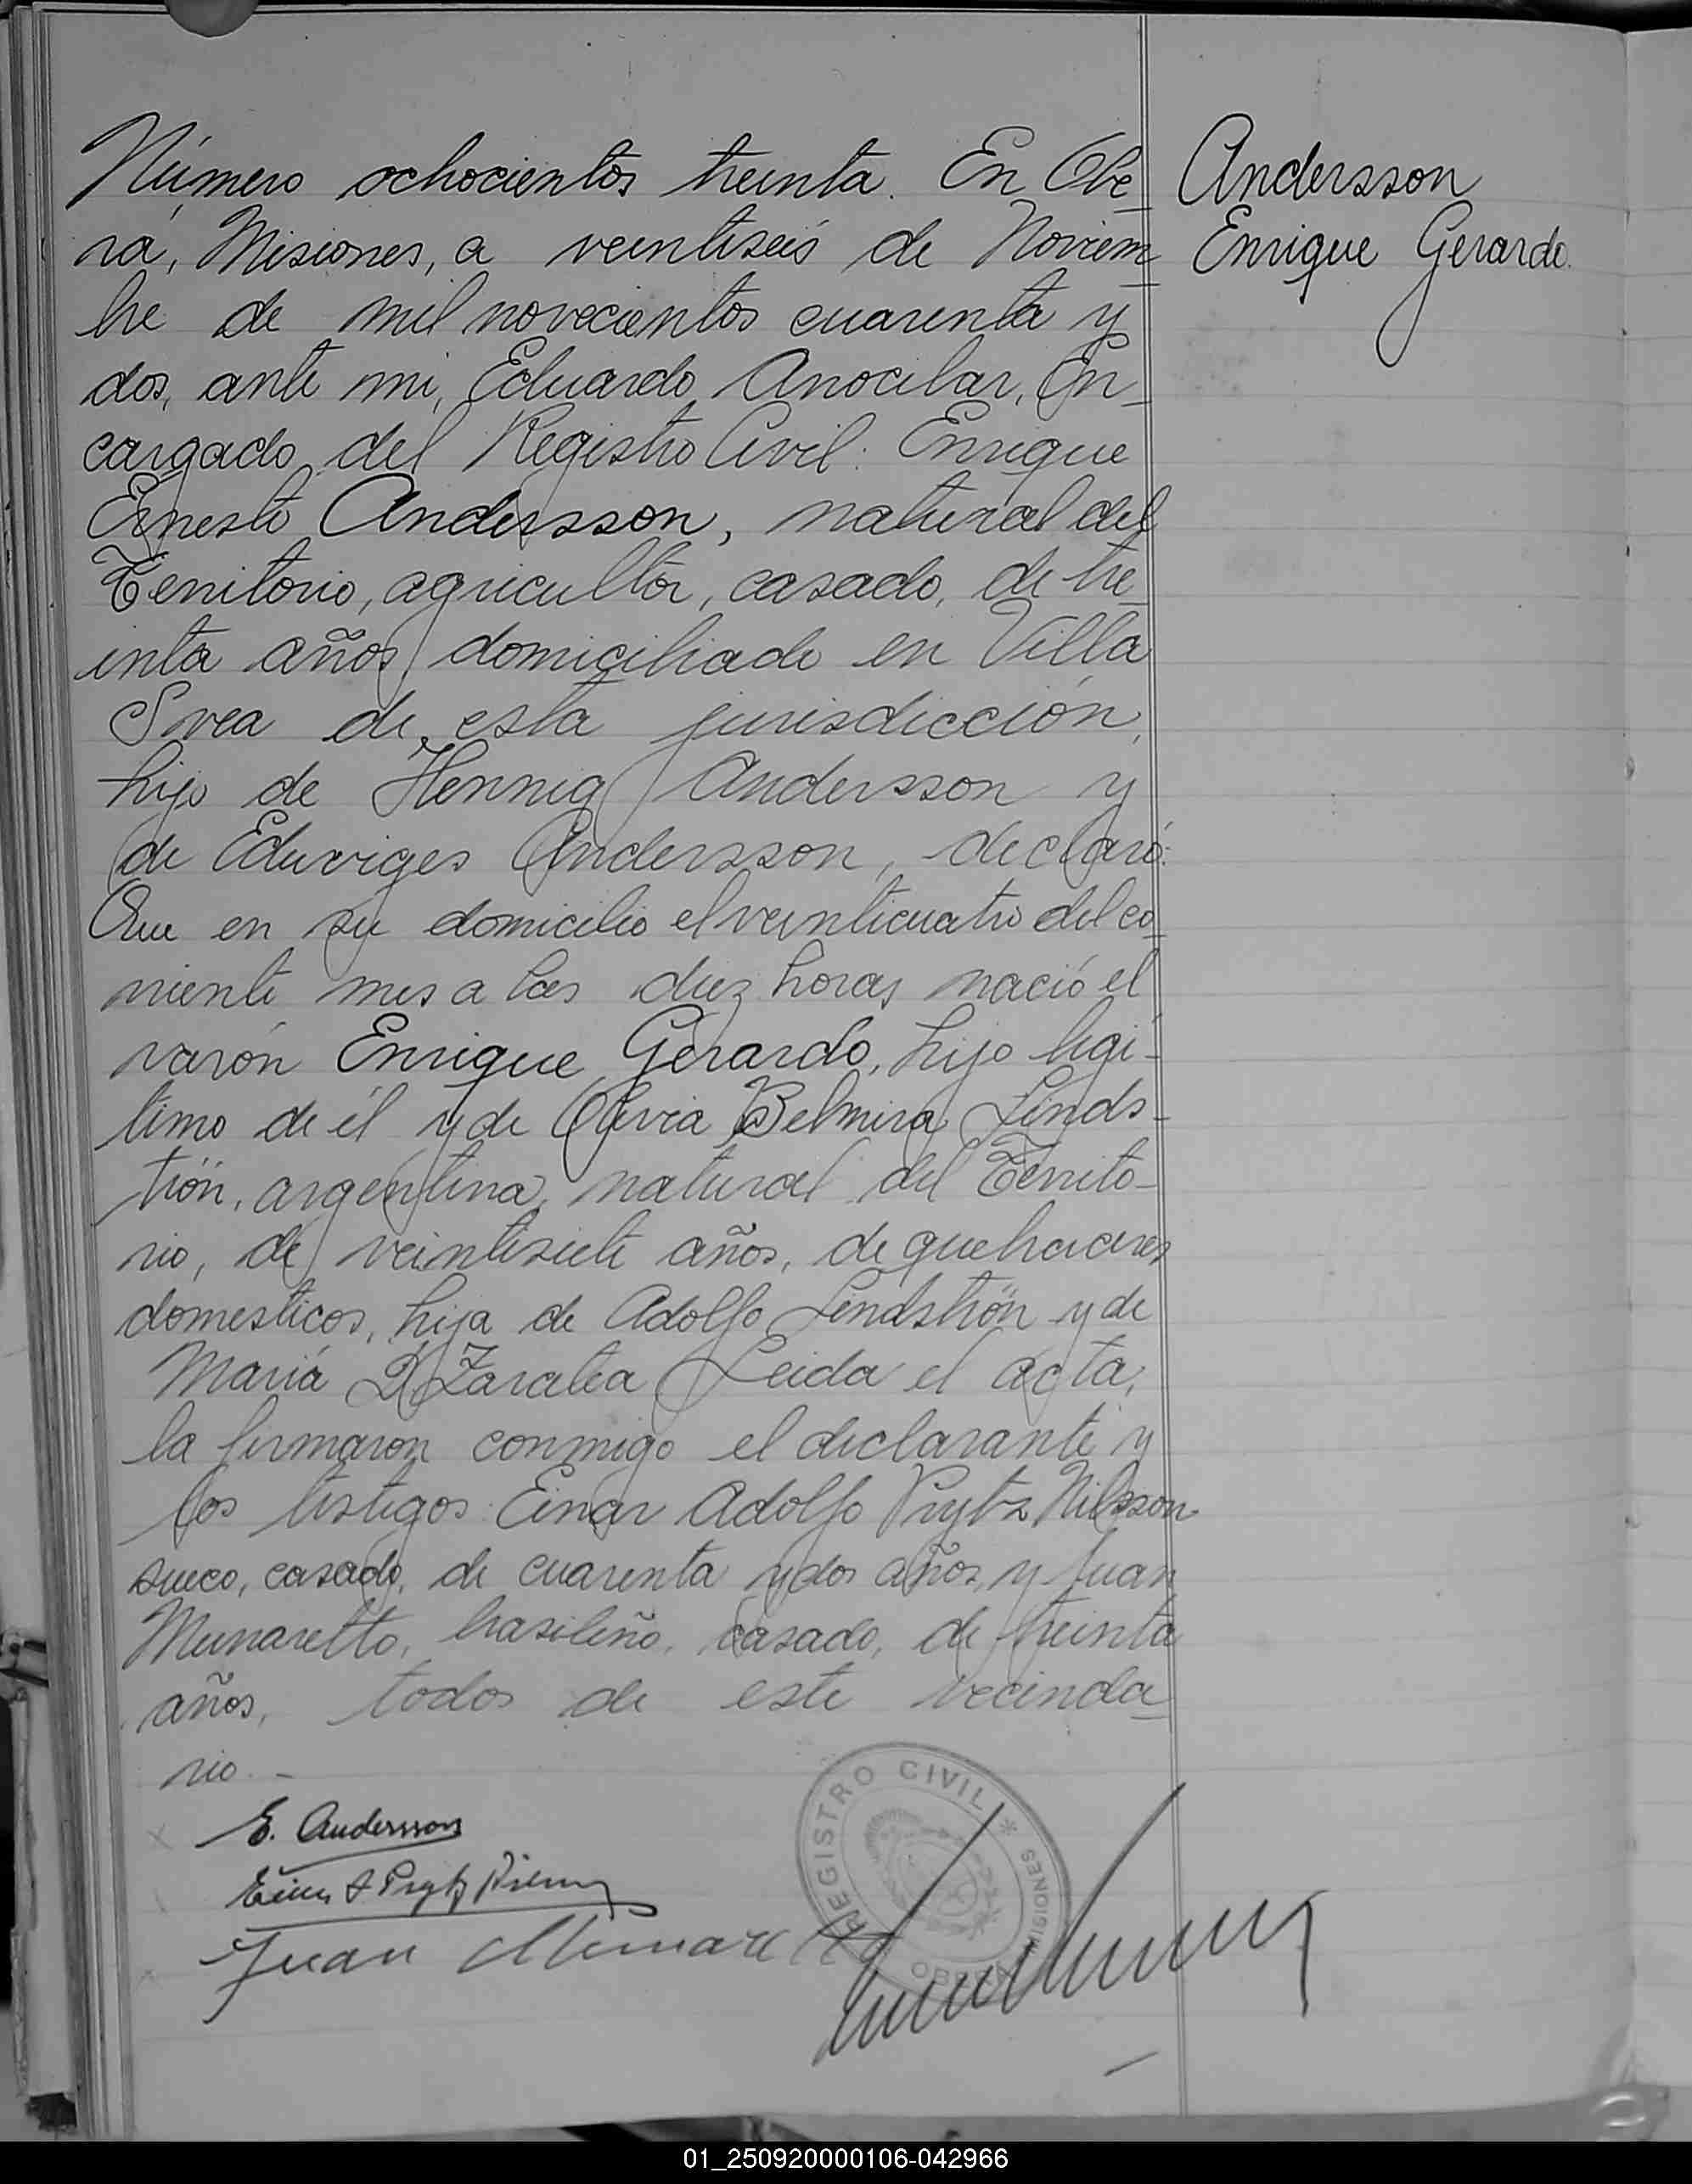 Número ochocientos treinta. En Obe_
rá, Misiones, a veintiseis de Noviem_
bre de mil novecientos cuarenta y
dos, ante mi, Eduardo Anocibar, En_
cargado del Registro Civil: Enrique
Ernesto Andersson, natural del
Territorio, agricultor, casado, de tre_
inta años, domiciliado en Villa
Svea de esta jurisdicción,
hijo de Hennig Andersson y
de Eduviges Andersson, declaró:
Que en su domicilio el veinticuatro del co_
rriente mes a las diez horas nació el
varón Enrique Gerardo, hijo legi-
timo de él y de Olivia Belmira Linds-
trön, argentina, natural del Territo-
rio, de veintisiete años, de quehaceres
domesticos, hija de Adolfo Lindströn y de
Maria Leida el acta,
la firmaron conmigo el declarante y
los testigos: Einar Adolfo Prytz Nilsson
sueco, casado, de cuarenta y dos años, y Juan
Munaretto, brasileño, casado, de treinta
años, todos de este vecinda_
rio.-
Andersson
Enrique Gerardo.
E. Andersson
Juan Munaretto
REGISTRO CIVIL * MISIONES
01_250920000106-042966